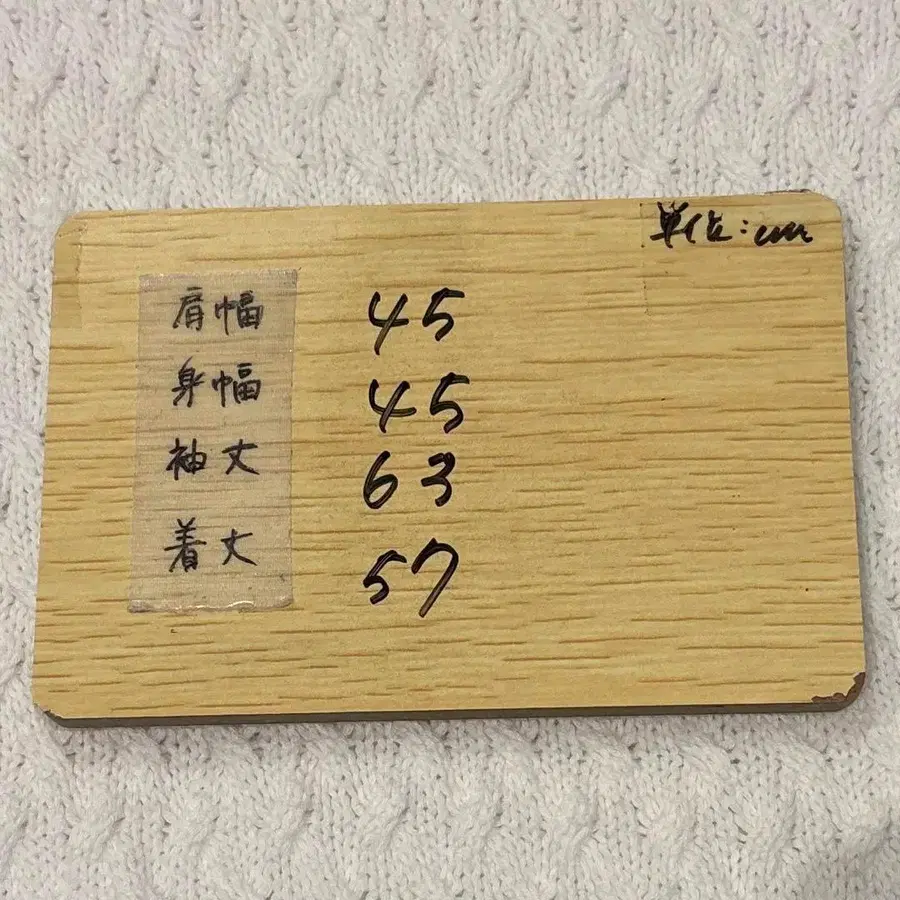 単位:cm
肩幅 45
身幅 45
袖丈 63
着丈 57